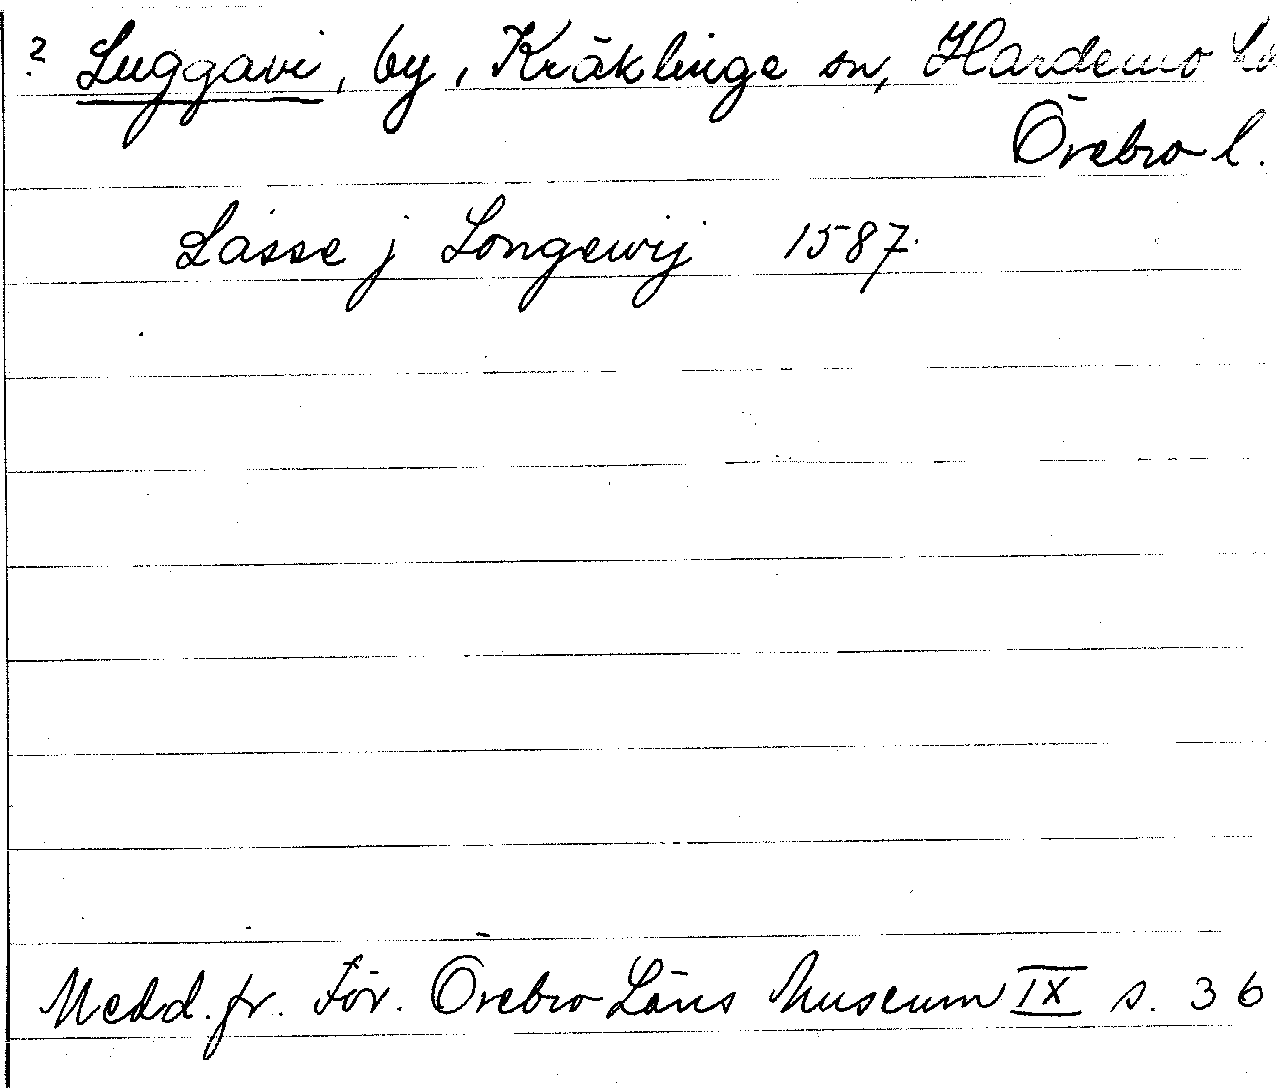 ? Luggavi, by, Kräklinge sn, Hardemo hd
Örebro l.
Lasse j Longewij 1587.
Medd. fr. För. Örebro Läns Museum IX s. 36